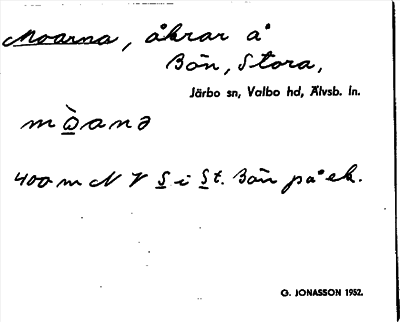 Moarna, åkrar å
Bön, Stora,
Järbo sn, Valbo hd, Älvsb. ln.
mὼanə
400 m N V S i St. Bön på ek.
G. JONASSON 1952.